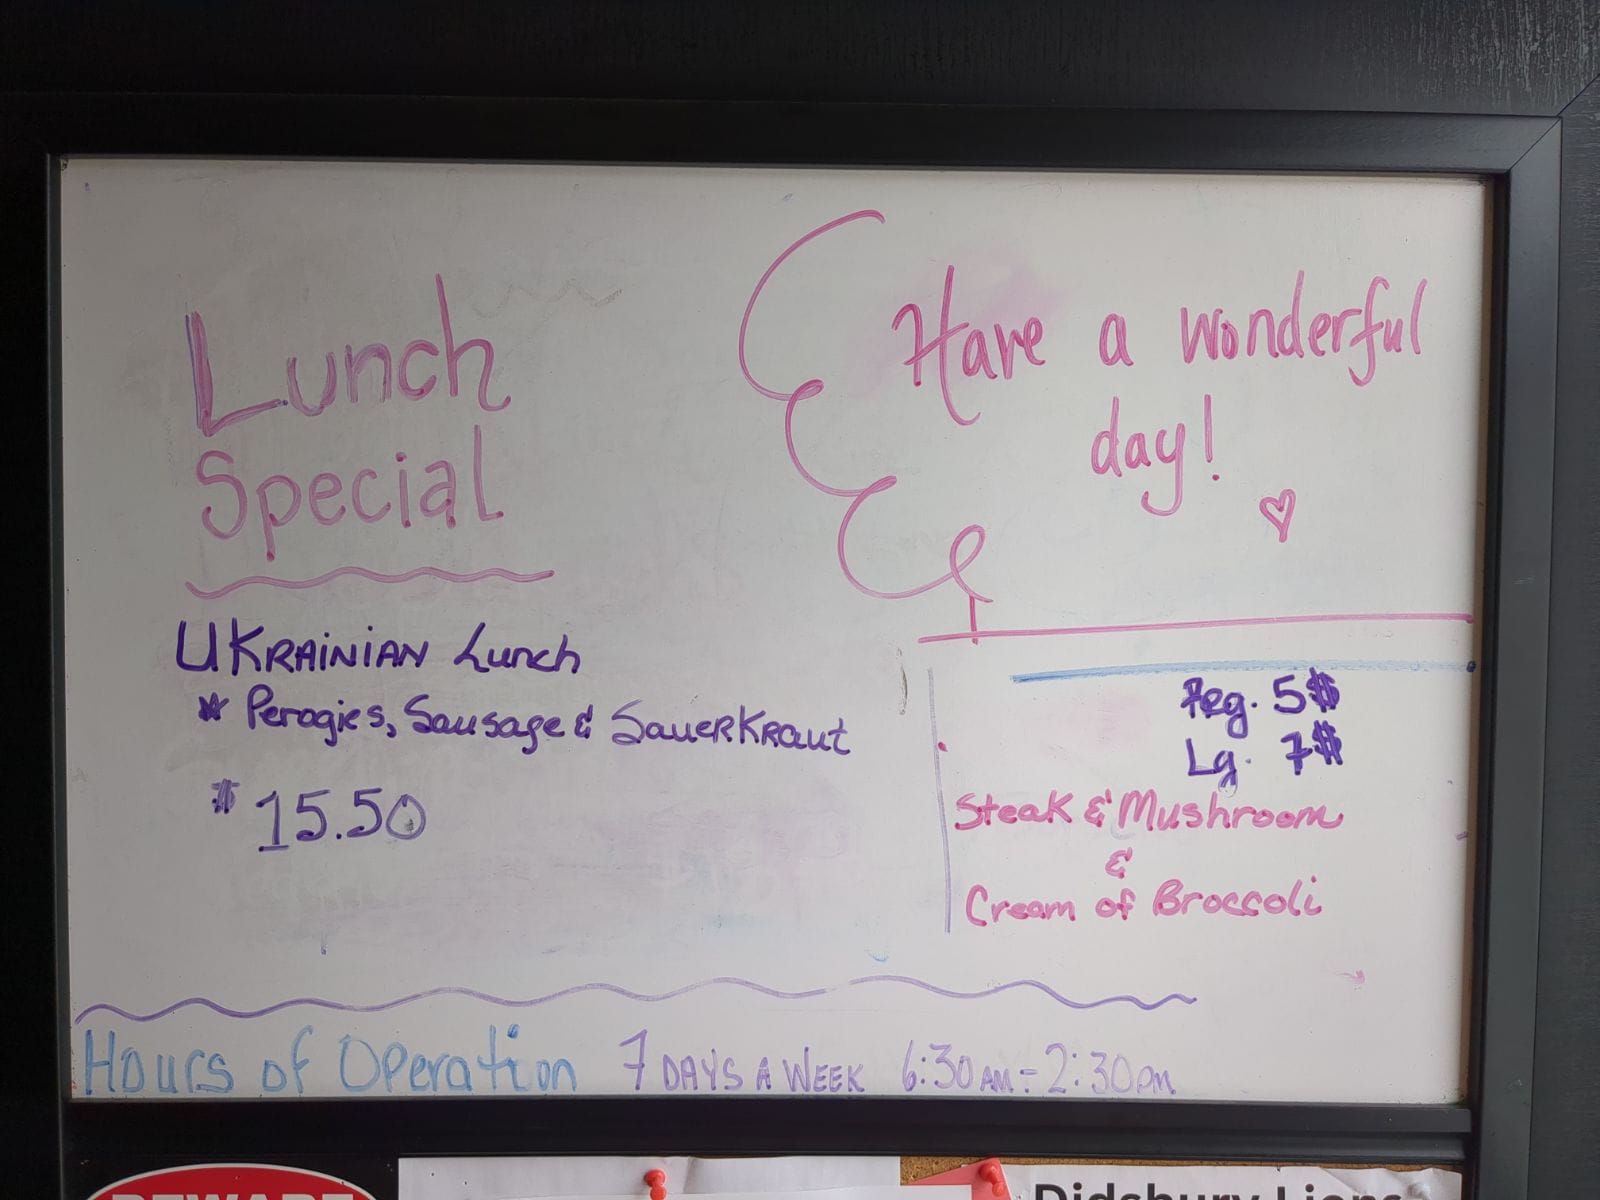 Lunch
Special
UKRAINIAN Lunch
* Perogies, Sausage & Sauerkraut
$ 15.50
Have a wonderful
day!
Reg. 5$
Lg. 7$
Steak & Mushroom
&
Cream of Broccoli
Hours of Operation 7 DAYS A WEEK 6:30AM - 2:30PM
BEWARE
Didsbury Lions